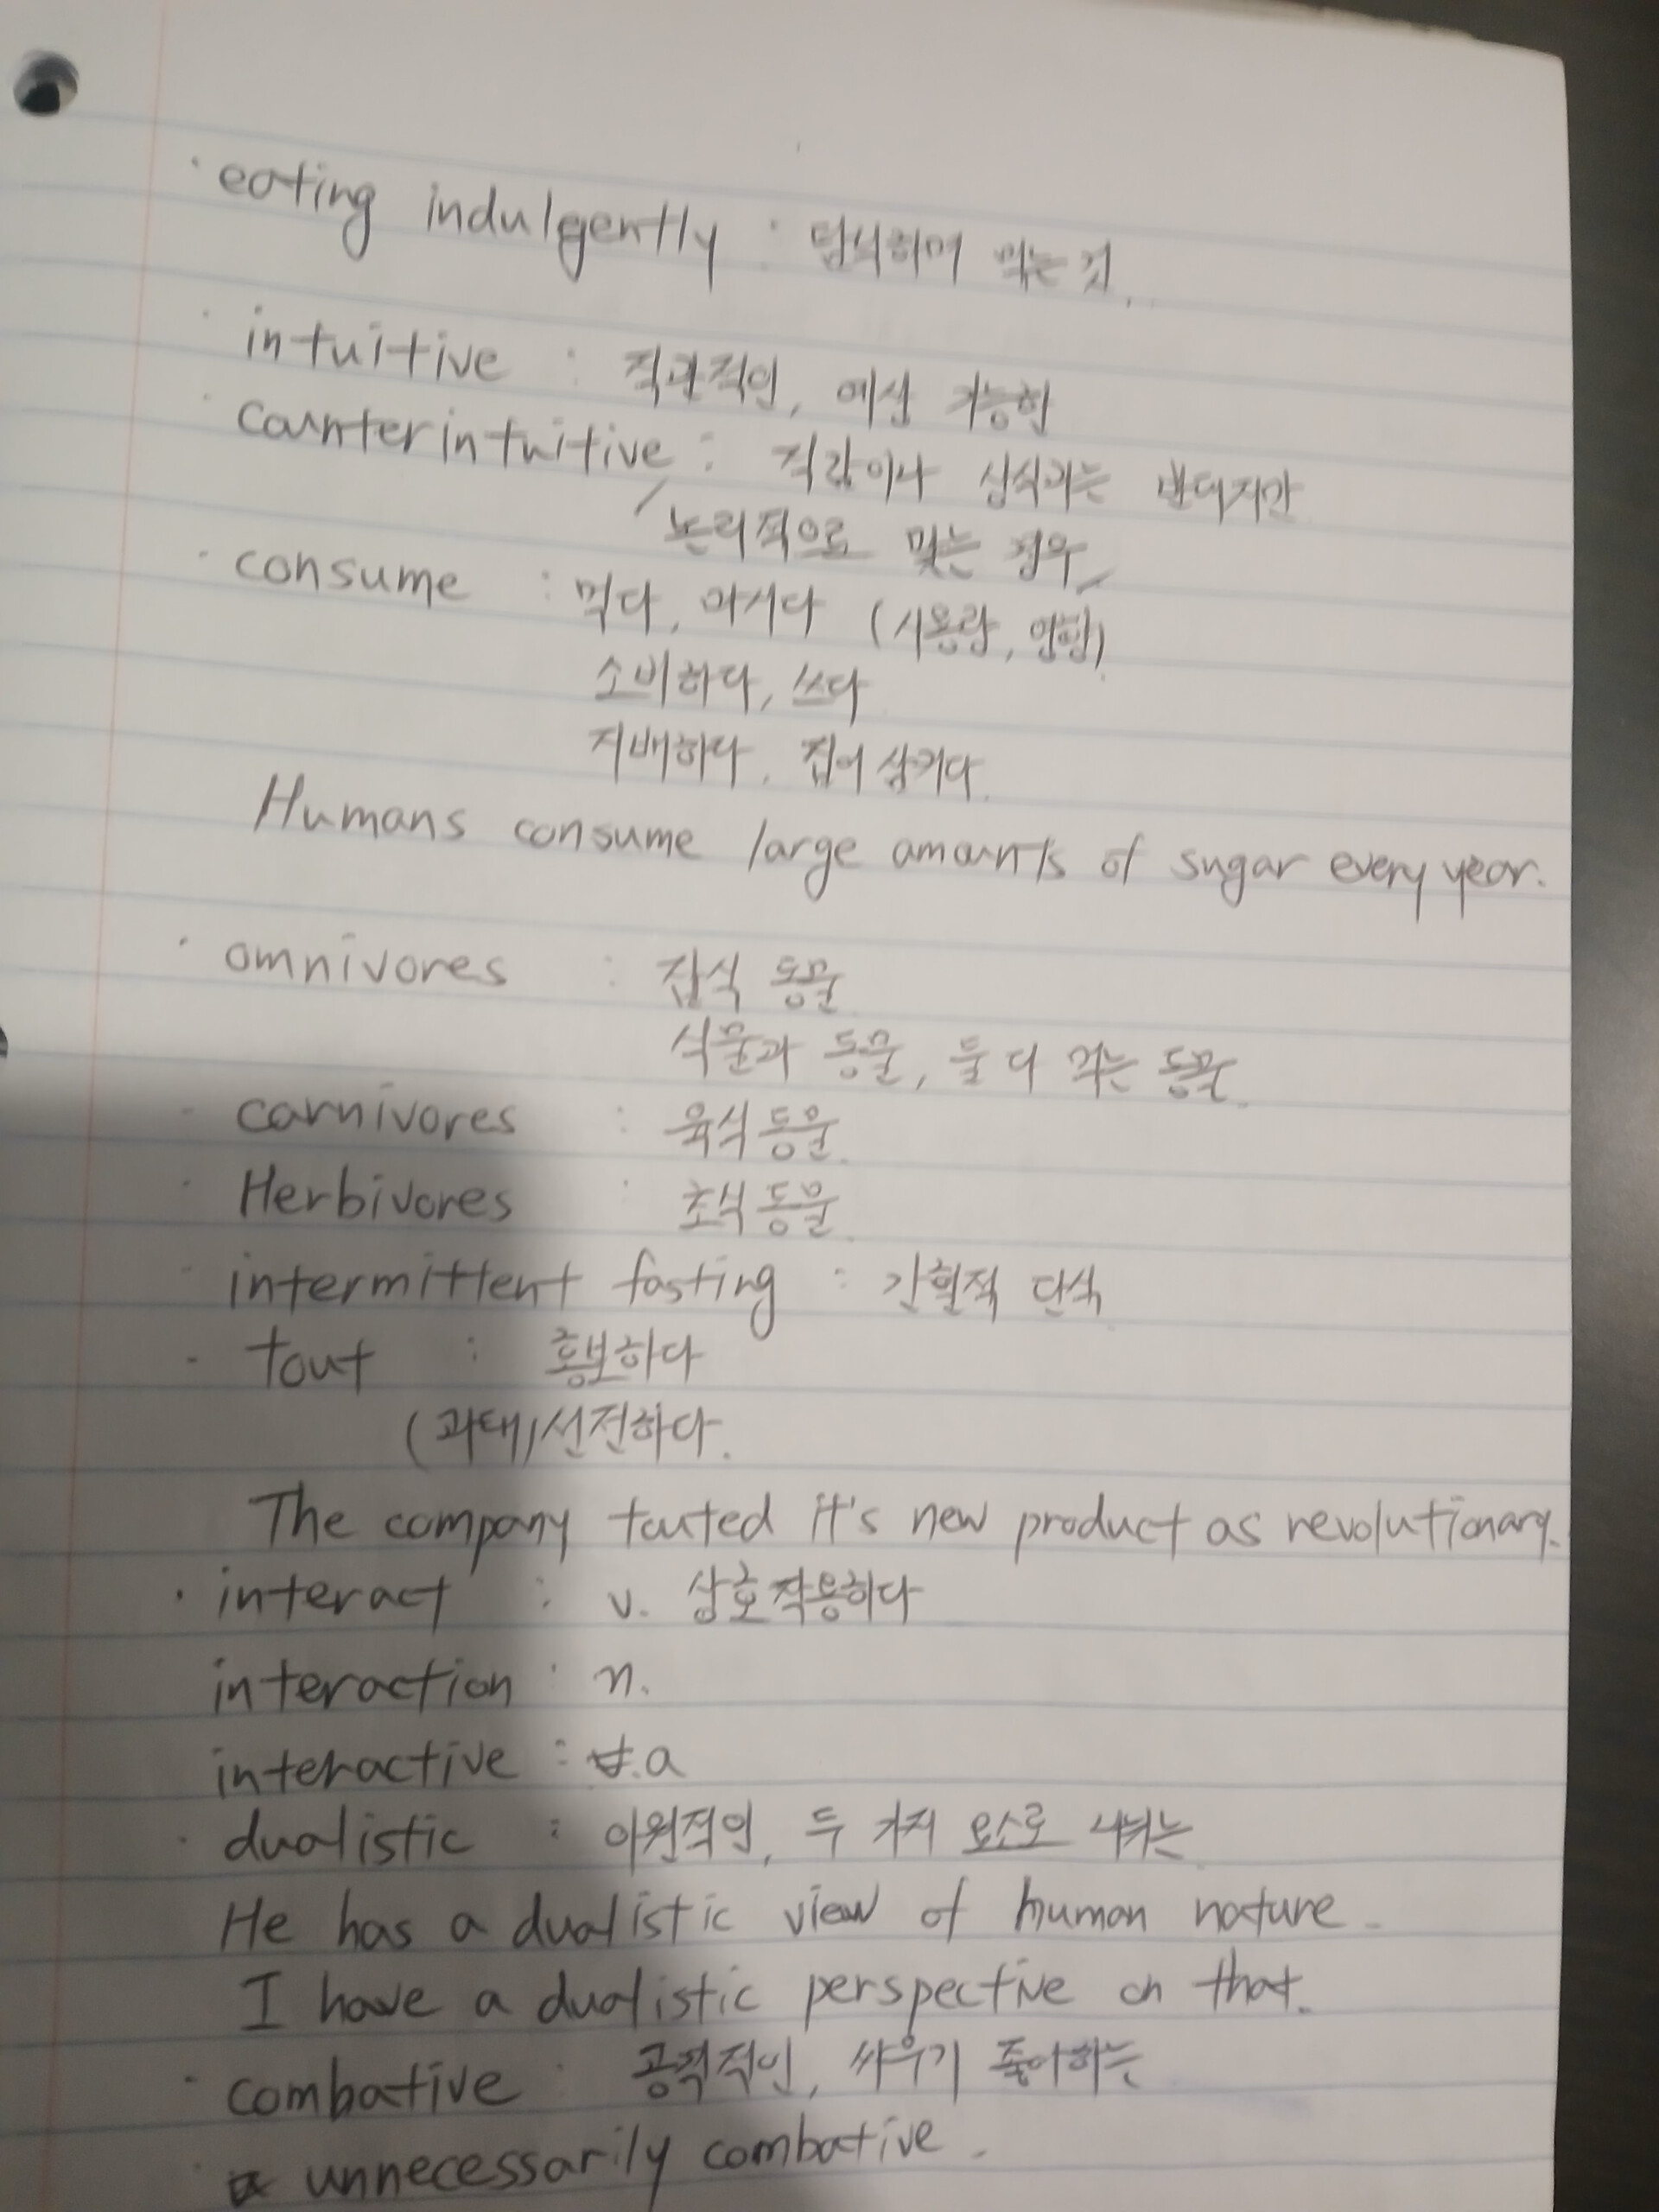 · eating indulgently : 탐식하며 먹는 것.
· intuitive : 직관적인, 예상 가능한
· counterintuitive : 직감이나 상식과는 반대지만
논리적으로 맞는 경우
· consume : 먹다, 마시다 (사용량, 영향)
소비하다, 쓰다
지배하다, 집어삼키다.
Humans consume large amounts of sugar every year.
· omnivores : 잡식 동물
식물과 동물, 둘 다 먹는 동물.
· carnivores : 육식동물.
· Herbivores : 초식동물.
· intermittent fasting : 간헐적 단식
· tout : 홍보하다
(과대)선전하다.
The company touted it's new product as revolutionary.
· interact : v. 상호작용하다
interaction : n.
interactive : a
· dualistic : 이원적인, 두 가지 요소로 나뉘는
He has a dualistic view of human nature.
I have a dualistic perspective on that.
· combative : 공격적인, 싸우기 좋아하는
unnecessarily combative.